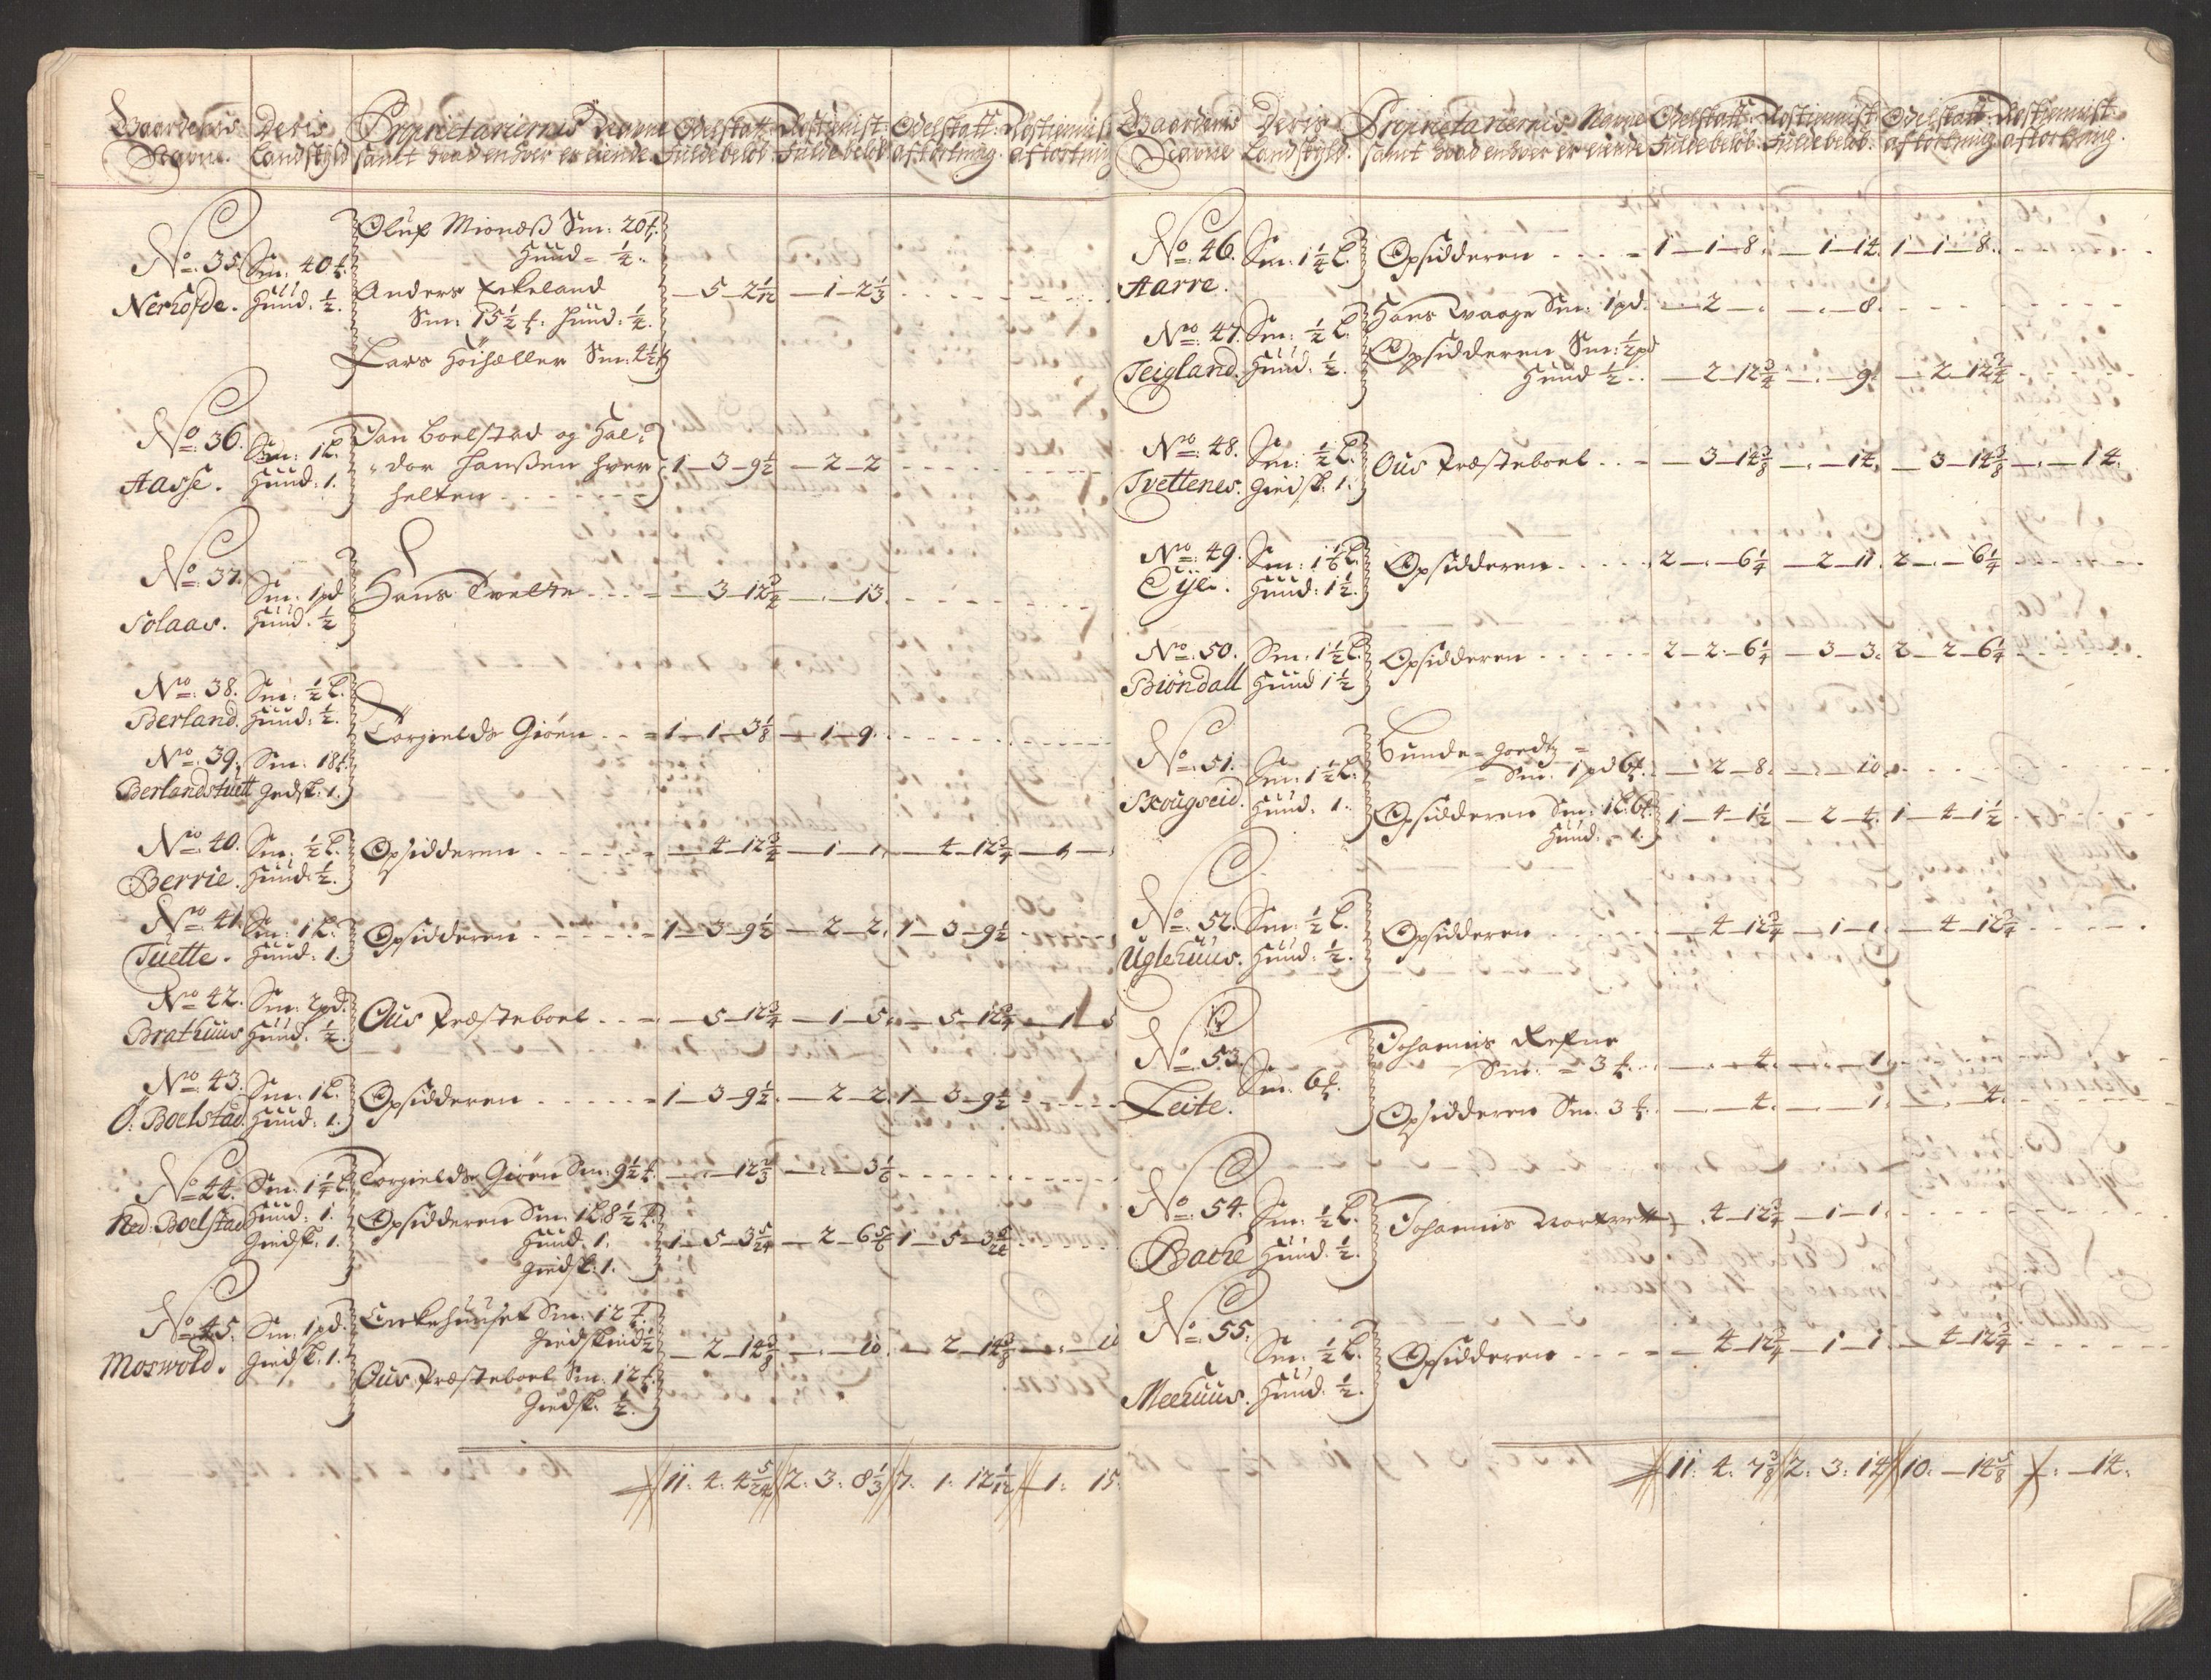 Gaardernis Navne. Deris Landskyld Proprietariernis Navne samt hvad enhver er eiende Odelskatt. fulde beløb. Rostienist. fulde beløb. Odelskatt. afkortning. Rostienniste afkortning
No: 35. Nerhofde. Sm: 40 ₶. Hund: ½. Oluf Mionæs Sm: 20 ₶.
Hund = ¼.
Anders Erkeland — 5 — 2 1/12 — 1 — 2⅓
Sm: 15½ ₶: hund: ¼.
Lars Høihæller Sm: 4½ ₶
No: 36. Aasse. Sm: 1 L. Hund: 1. Jan Boelstad og Hal-
dor Hanßen hver 1 — 3 — 9½ — 2 — 2
helten
No: 37. Solaas. Sm: 1 pd Hund: ½ Hans Tvette — 3 — 12¾ — . — 13.
No: 38. Berland. Sm: ½ L. Hund: ½.
Torgields Giøen 1 — 1 — 3⅛ — 1 — 9.
No: 39. Berlandstuett Sm: 18 ₶. Gedsk: 1.
No: 40. Berrie. Sm: ½ L. Hund: ½. Opsidderen — 4 — 12¾ — 1 — 1. — 4 — 12¾ — 1 —
No: 41. Tuette. Sm: 1 L. Hund: 1. Opsidderen 1 — 3 — 9½ — 2 — 2. 1 — 3 — 9½
No: 42. Brathuus Sm: 2 pd. Hund: ½. Ous Præsteboel — 5 — 12¾ — 1 — 5. — 5 — 12¾ — 1 — 5
No: 43. O: Boelstad. Sm: 1 L. Hund: 1. Opsidderen 1 — 3 — 9½ — 2 — 2. 1 — 3 — 9½
No: 44. Ned: Boelstad Sm: 1¼ L. Hund: 1. Giedsk: 1. Torgields Giøen Sm: 9½ ₶. — . — 12⅔ — . — 3⅙
Opsidderen Sm: 1 L 8½ ₶. Hund: 1. Giedsk: 1. 1 — 5 — 3 5/24 — 2 — 6⅚ 1 — 5 — 3 5/24
No: 45. Moswold. Sm: 1 pd. Giedsk: 1. Kirkehuuset Sm: 12 ₶.
Giedskind ½ — 2 — 14⅜ — . — 10. — 2 — 14⅜ — . — 10
Ous Præsteboel Sm: 12 ₶.
Giedsk: ½.
11: 4: 4 5/24 2: 3: 8⅓ 7: 1: 12 1/12 — 1: 15
Gaardernis Navne Deris Landskyld. Proprietariernis Navne samt hvad enhver er eiende Odelskatt. fulde beløb. Rostiennist. fulde beløb. Odelskatt. afkortning. Rostiennist. afkortning.
No: 46. Aarre. Sm: 1¼ L. Opsidderen 1 — 1 — 8. — 1 — 14. 1 — 1 — 8.
No: 47. Teigland. Sm: ½ L. Hund: ½. Hans Waage Sm: 1 pd. — 2 — . — . — 8.
Opsidderen Sm: ½ pd
Hund ½ — 2 — 12¾ — . — 9. — 2 — 12¾
No: 48. Tvettenes. Sm: ½ L. Giedsk: 1. Ous Præsteboel — 3 — 14⅜ — . — 14. — 3 — 14⅜ — . — 14.
No: 49. Eÿe. Sm: 1⅙ L. Hund: 1½. Opsidderen 2 — . — 6¼ — 2 — 11. 2 — . — 6¼
No: 50. Biøndall Sm: 1½ L. Hund 1½ Opsidderen 2 — 2 — 6¼ — 3 — 3. 2 — 2 — 6¼
No: 51. Skougseid. Sm: 1½ L. Hund: 1. Bunde-goedtz
Sm: 1 pd 6 ₶. — 2 — 8. — . — 10.
Opsidderen Sm: 1 L. 6 ₶.
Hund: 1. 1 — 4 — 1½ — 2 — 4. 1 — 4 — 1½
No: 52. Uglehuus. Sm: ½ L. Hund: ½. Opsidderen — 4 — 12¾ — 1 — 1. — 4 — 12¾
No: 53. Leite. Sm: 6 ₶. Johannis Refne
Sm: 3 ₶. — . — 4. — . — 1.
Opsidderen Sm: 3 ₶. — . — 4. — . — 1. — . — 4.
No: 54. Backe Sm: ½ L. Hund: ½. Johannis — 4 — 12¾ — 1 — 1.
No: 55. Meehuus. Sm: ½ L. Hund: ½. Opsidderen — 4 — 12¾ — 1 — 1. — 4 — 12¾
11: 4: 7⅜ 2: 3: 14 10: — 14⅝ — : — 14: